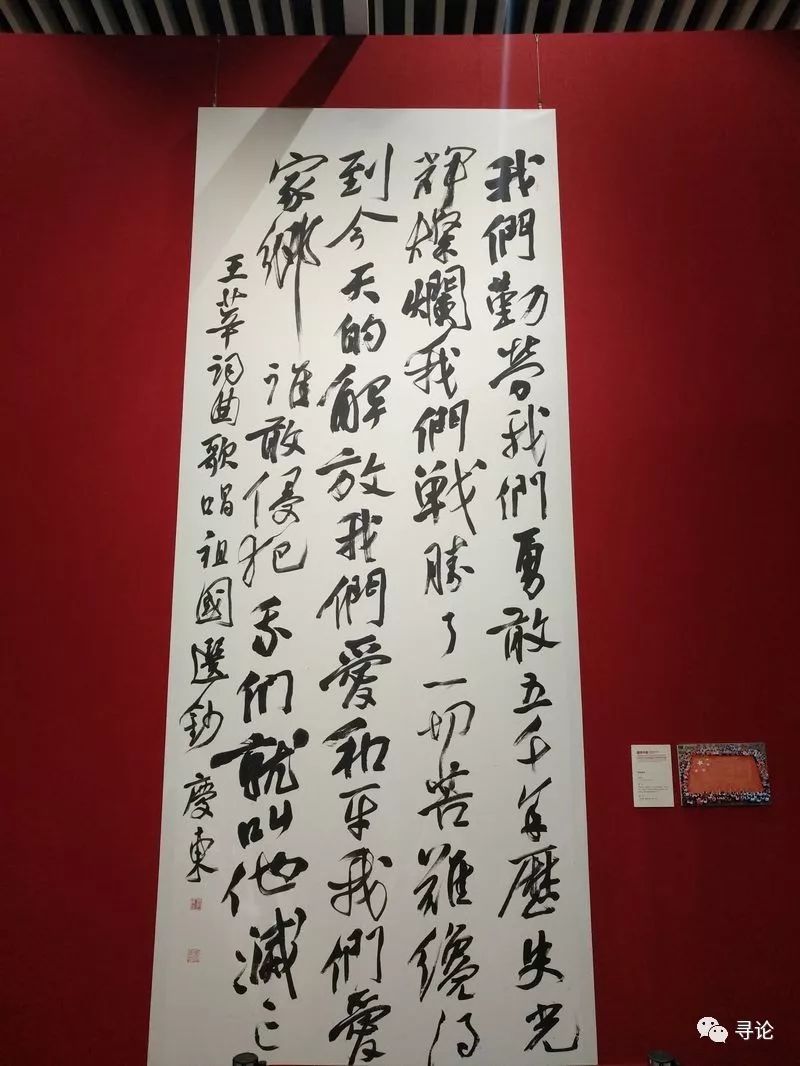 我們勤勞我們勇敢五千年歷史光
輝燦爛我們戰勝了一切苦難纔得
到今天的解放我們愛和平我們愛
家鄉 誰敢侵犯我們就叫他滅亡
王莘詞曲歌唱祖國選鈔 慶東
寻论